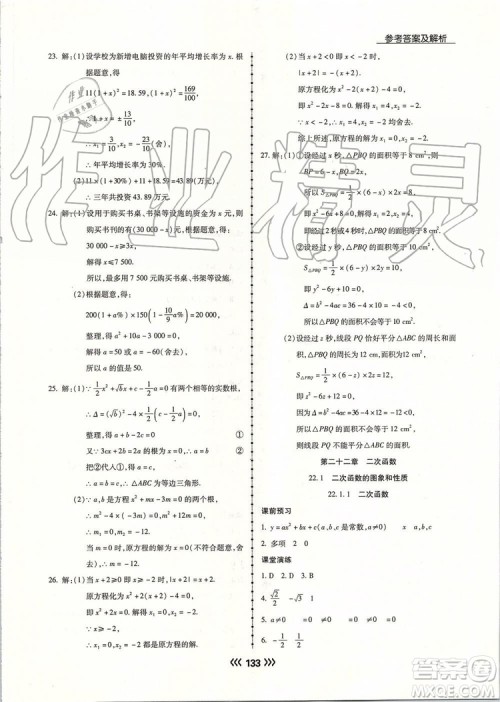 参考答案及解析
23. 解:(1)设学校为新增电脑投资的年平均增长率为 x.
根据题意,得
11(1+x)²=18.59,(1+x)²=169/100
∴ 1+x=±13/10
∴ 年平均增长率为30%.
(2)11×(1+30%)+11+18.59=43.89(万元).
∴ 三年共投资 43.89 万元.
24. 解:(1)设用于购买书桌、书架等设施的资金为 x 元,
根据题意,得:
30 000-x≥3x,
解得 x≤7 500.
所以,最多用 7 500 元购买书桌、书架等设施.
(2)根据题意,得
200(1+a%)×150(1-10/9 a%)=20 000
整理,得 a²+10a-3 000=0
解得 a=50 或 a=-60(舍去)
所以 a 的值是 50.
25. 解:(1)∵ 1/2 x²+√b x+c-1/2 a=0 有两个相等的实数根,
∴ Δ=(√b)²-4×1/2×(c-1/2 a)=0,
整理,得 a+b-2c=0 ①
又∵ 3cx+2b=2a 的根为 x=0,
∴ a=b ②
把②代入①,得 a=c,
∴ a=b=c
∴ △ABC 为等边三角形.
(2)a,b 是方程 x²+mx-3m=0 的两个根,
∴ m²-4×(-3m)=0,
即 m²+12m=0
∴ m₁=0,m₂=-12.
当 m=0 时,原方程的解为 x=0(不符合题意,舍去),
∴ m=-12.
26. 解:(1)当 x+2≥0 时,即 x≥-2 时,
|x+2|=x+2,
原方程化为 x²+2(x+2)-4=0,
即 x²+2x=0,解得 x₁=0,x₂=-2.
∵ x≥-2,
∴ x₁=0,x₂=-2 都是原方程的解.
(2)当 x+2<0 时,即 x<-2 时,
|x+2|=-(x+2),
原方程化为 x²-2(x+2)-4=0,
即 x²-2x-8=0.解得 x₁=4,x₂=-2,
∵ x<-2,∴ x₁=4,x₂=-2 舍去.
综上所述,原方程的解为 x₁=0,x₂=-2.
27. 解:(1)①设经过 x 秒,△PBQ 的面积等于 8 cm²,则
BP=6-x,BQ=2x.
解得 x₁=2,x₂=4
即经过2秒或4秒时,△PBQ 的面积等于 8 cm².
②设经过 y 秒,△PBQ 的面积等于
即 y²-6y+10=0
∴ △PBQ 的面积不会等于
(2)设经过 z 秒,线段 PQ 恰好平分△ABC 的周长和面积.
∴ △PBQ 的周长为 12 cm,面积为 12 cm²,
即 z²-6z+12=0,
∴ △PBQ 的面积不会等于 12 cm².
则线段 PQ 不能平分△ABC 的面积.
第二十二章 二次函数
22.1 二次函数的图象和性质
22.1.1 二次函数
课前预习
1. y=ax²+bx+c(a,b,c是常数,a≠0)
2. 多项 2 0
课堂演练
1. D 2. D 3. D
4. √2/2 -√3 1
5. a≠0 =0 ≠0 =0 =0
6. -1/2 1/2
133
作业精灵
MXQE.COM